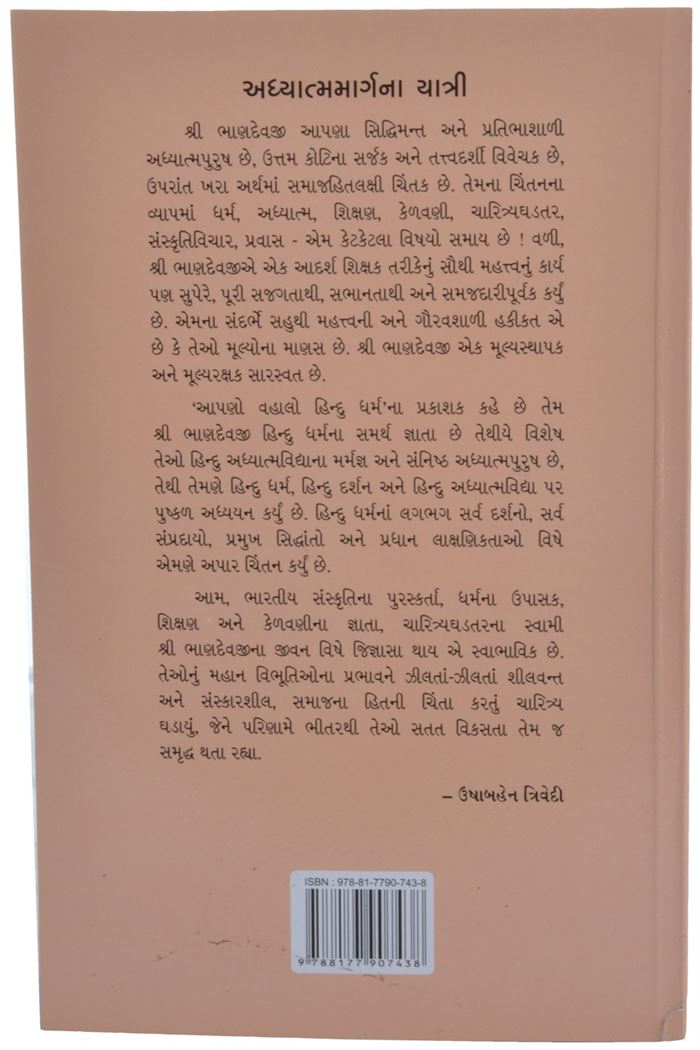 અધ્યાત્મમાર્ગના યાત્રી
શ્રી ભાણદેવજી આપણા સિદ્ધિમન્ત અને પ્રતિભાશાળી
અધ્યાત્મપુરુષ છે, ઉત્તમ કોટિના સર્જક અને તત્ત્વદર્શી વિવેચક છે,
ઉપરાંત ખરા અર્થમાં સમાજહિતલક્ષી ચિંતક છે. તેમના ચિંતનના
વ્યાપમાં ધર્મ, અધ્યાત્મ, શિક્ષણ, કેળવણી, ચારિત્ર્યઘડતર,
સંસ્કૃતિવિચાર, પ્રવાસ - એમ કેટકેટલા વિષયો સમાય છે ! વળી,
શ્રી ભાણદેવજીએ એક આદર્શ શિક્ષક તરીકેનું સૌથી મહત્ત્વનું કાર્ય
પણ સુપેરે, પૂરી સજગતાથી, સભાનતાથી અને સમજદારીપૂર્વક કર્યું
છે. એમના સંદર્ભે સહુથી મહત્ત્વની અને ગૌરવશાળી હકીકત એ
છે કે તેઓ મૂલ્યોના માણસ છે. શ્રી ભાણદેવજી એક મૂલ્યસ્થાપક
અને મૂલ્યરક્ષક સારસ્વત છે.
‘આપણો વહાલો હિન્દુ ધર્મ’ના પ્રકાશક કહે છે તેમ
શ્રી ભાણદેવજી હિન્દુ ધર્મના સમર્થ જ્ઞાતા છે તેથીયે વિશેષ
તેઓ હિન્દુ અધ્યાત્મવિદ્યાના મર્મજ્ઞ અને સંનિષ્ઠ અધ્યાત્મપુરુષ છે,
તેથી તેમણે હિન્દુ ધર્મ, હિન્દુ દર્શન અને હિન્દુ અધ્યાત્મવિદ્યા પર
પુષ્કળ અધ્યયન કર્યું છે. હિન્દુ ધર્મનાં લગભગ સર્વ દર્શનો, સર્વ
સંપ્રદાયો, પ્રમુખ સિદ્ધાંતો અને પ્રધાન લાક્ષણિકતાઓ વિષે
એમણે અપાર ચિંતન કર્યું છે.
આમ, ભારતીય સંસ્કૃતિના પુરસ્કર્તા, ધર્મના ઉપાસક,
શિક્ષણ અને કેળવણીના જ્ઞાતા, ચારિત્ર્યઘડતરના સ્વામી
શ્રી ભાણદેવજીના જીવન વિષે જિજ્ઞાસા થાય એ સ્વાભાવિક છે.
તેઓનું મહાન વિભૂતિઓના પ્રભાવને ઝીલતાં-ઝીલતાં શીલવન્ત
અને સંસ્કારશીલ, સમાજના હિતની ચિંતા કરતું ચારિત્ર્ય
ઘડાયું, જેને પરિણામે ભીતરથી તેઓ સતત વિકસતા તેમ જ
સમૃદ્ધ થતા રહ્યા.
– ઉષાબહેન ત્રિવેદી
ISBN : 978-81-7790-743-8
9 788177 907438